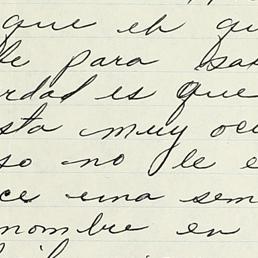 que eh qu
be para sab
rdad es que
sta muy ocu
so no le e
ce una sem
nombre en